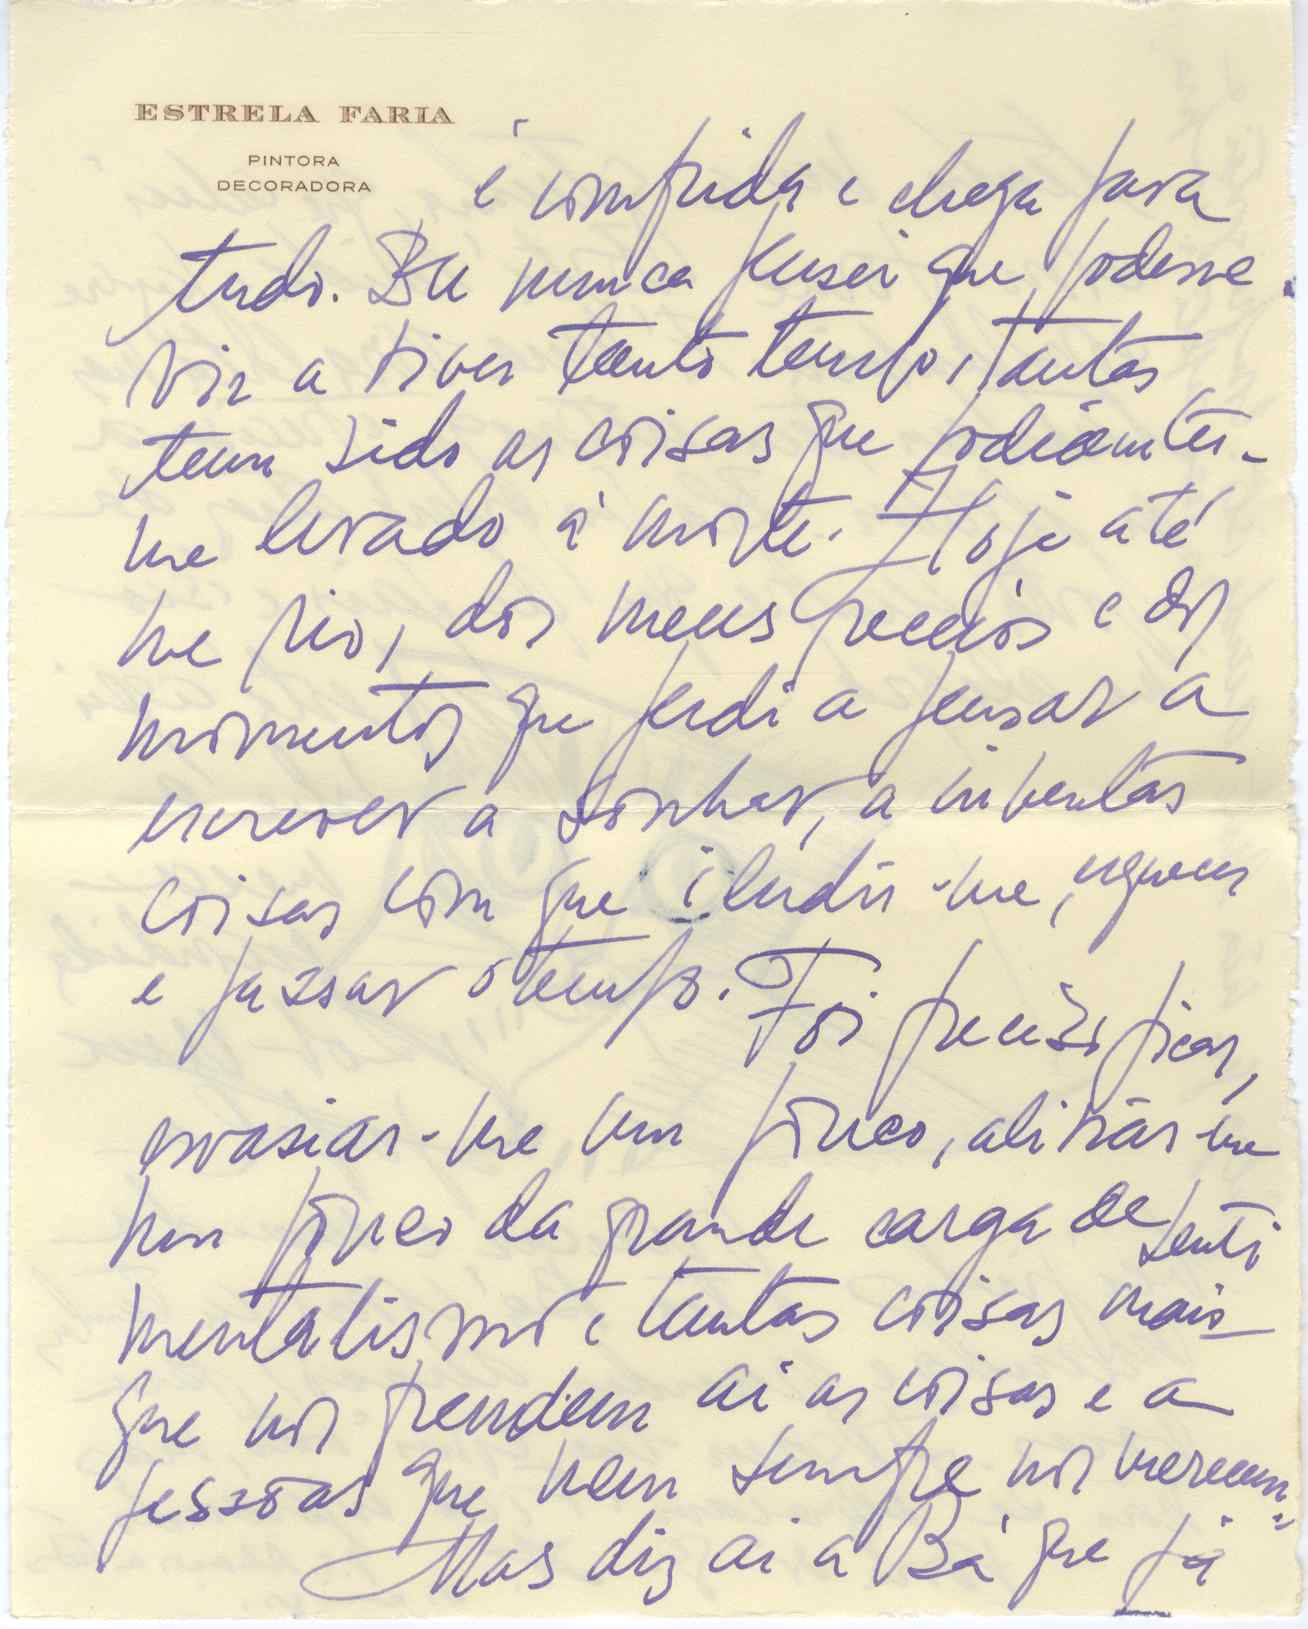 ESTRELA FARIA
PINTORA
DECORADORA
é comprida e chega para
tudo. Eu nunca pensei que podesse
vir a viver tanto tempo, tantas
teem sido as coisas que podiam ter-
me levado á morte. Hoje até
me rio, dos meus receios e dos
momentos que perdi a pensar a
escrever a sonhar, a inventar
coisas com que iludir-me,
e passar o tempo. Foi preciso ficar,
esvasiar-me um pouco, aliviar-me
um pouco da grande carga de senti
mentalismo e tantas coisas mais
que nos prendem ai as coisas e a
pessoas que nem sempre nos merecem.
Mas diz ai a Bá que já